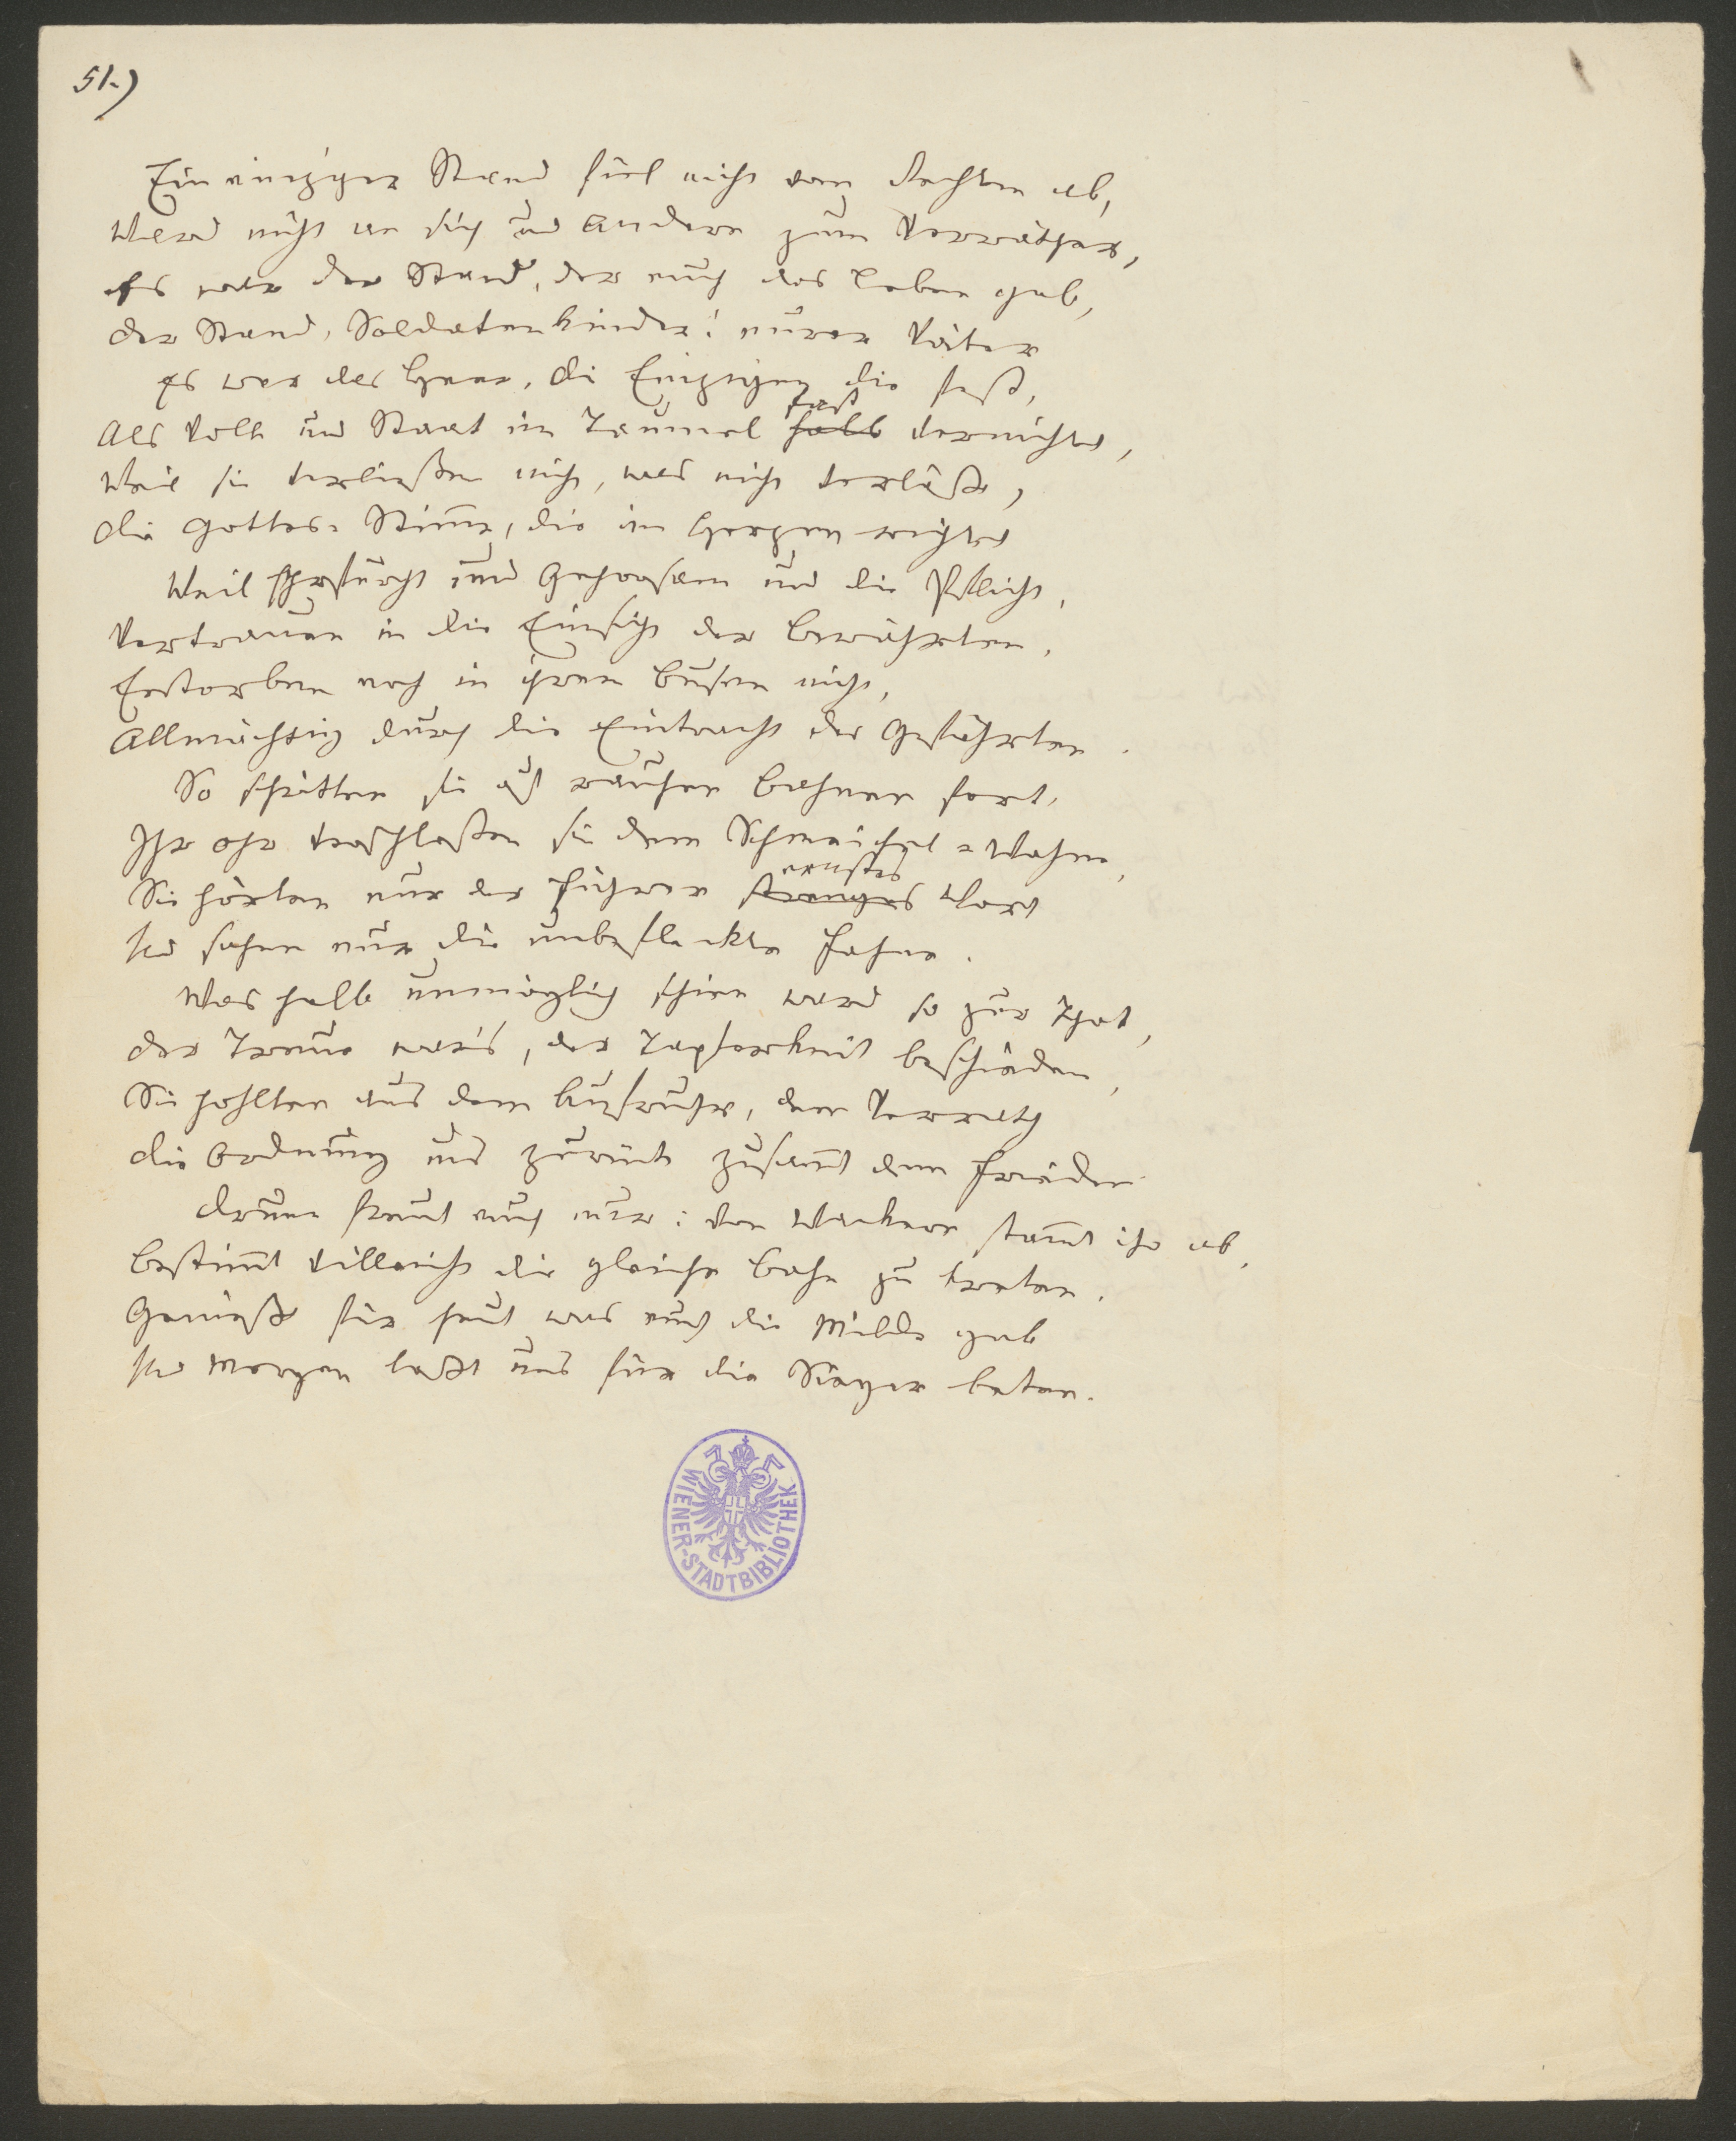 51.)
Ein einziger Stand fiel nicht vom Rechten ab,
Ward nicht an sich und Andern zum Verräther,
Es war der Stand, der euch das Leben gab,
Der Stand, Soldatenkinder! eurer Väter
Es war das Heer, die Einzigen die fest,
Als Volk und Staat im Taumel halb fast vernichtet,
Weil sie verließen nicht, was nicht verläßt,
Die Gottes-Stimme, die im Herzen richtet
Weil Ehrfurcht und Gehorsam und die Pflicht,
Vertrauen in die Einsicht der Bewährten,
Erstorben noch in ihrem Busen nicht,
Allmächtig durch die Eintracht der Gefährten.
So schritten sie auf rauhen Bahnen fort,
Ihr Ohr verschloßen sie dem Schmeichel-Wahne,
Sie hörten nur der Führer strenges ernstes Wort
Und sahen nur die unbefleckte Fahne.
Was halb unmöglich schien ward so zur That,
Der Treue war's, der Tapferkeit beschieden,
Sie hohlten aus dem Aufruhr, dem Verrath
Die Ordnung uns zurück zusammt dem Frieden
Drum freut euch nur: von Wackern stammt ihr ab,
Bestimmt villeicht die gleiche Bahn zu treten.
Genießt für heut was euch die Milde gab
Und Morgen laßt uns für die Sieger beten.
WIENER-STADTBIBLIOTHEK